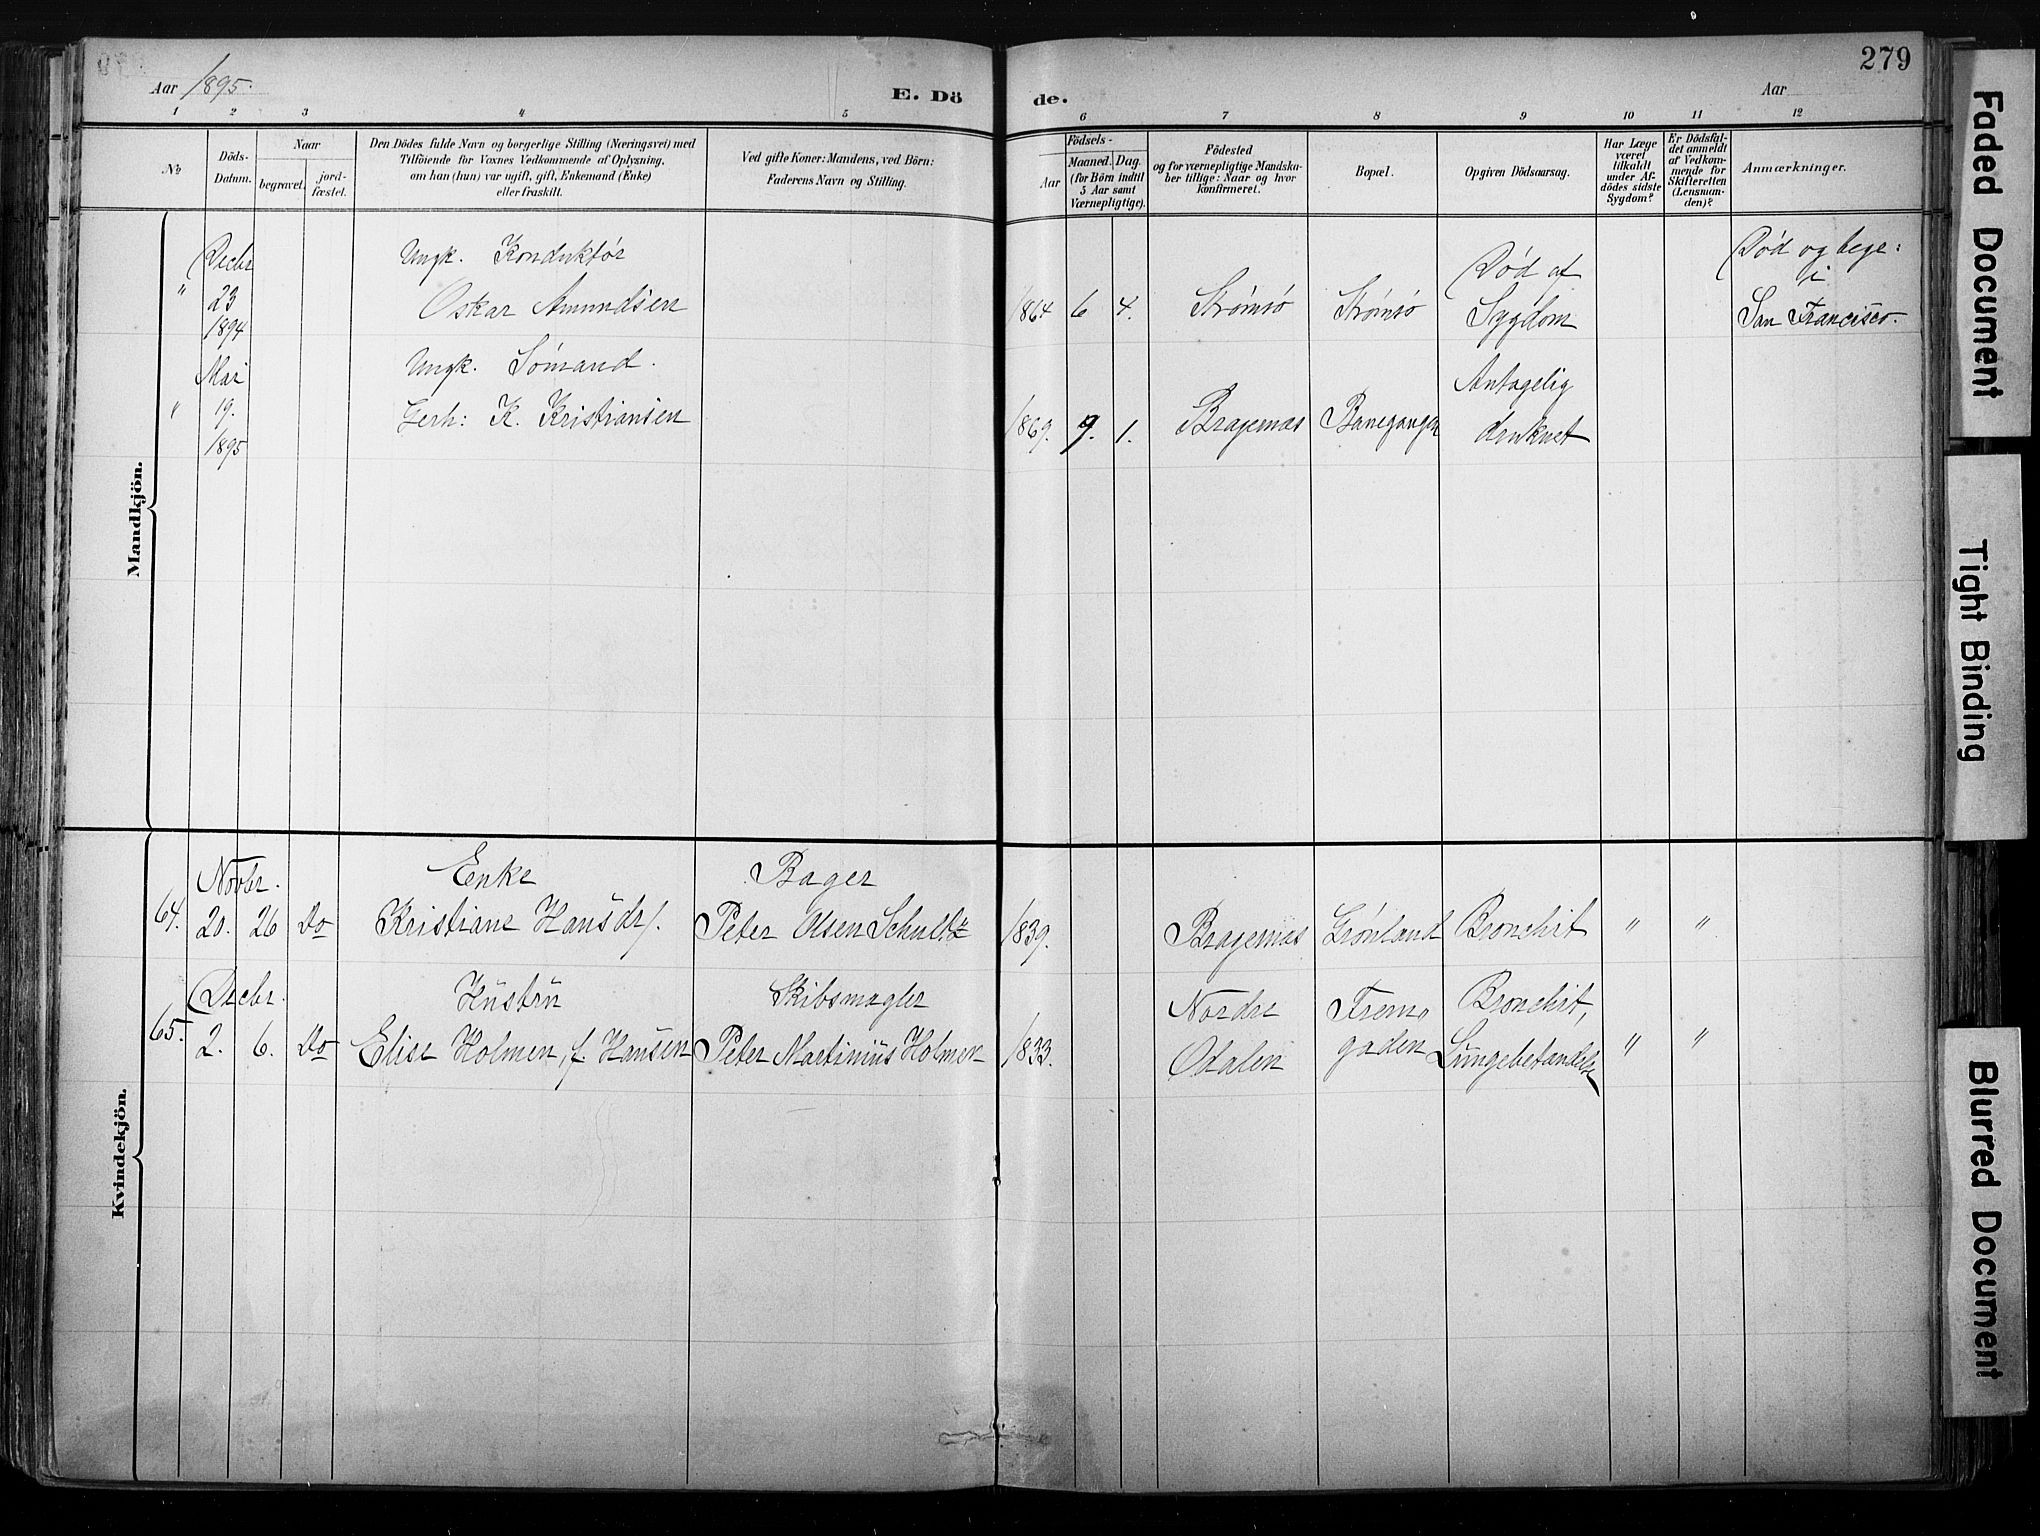 279
Aar 1895.
E. Dö
de.
Aar
1 2 3 4 5 6 7 8 9 10 11 12
No
Döds-
Datum.
Naar
begravet.
jord-
fæstet.
Den Dödes fulde Navn og borgerlige Stilling (Næringsvei) med
Tilföiende for Voxnes Vedkommende af Oplysning,
om han (hun) var ugift, gift, Enkemand (Enke)
eller fraskilt.
Ved gifte Koner: Mandens, ved Börn:
Faderens Navn og Stilling.
Födsels-
Aar
Maaned. Dag.
(for Börn indtil
5 Aar samt
Værnepligtige).
Födested
og for værnepligtige Mandska-
ber tillige: Naar og hvor
konfirmeret.
Bopæl.
Opgiven Dödsaarsag.
Har Læge
været
tilkaldt
under Af-
dödes sidste
Sygdom?
Er Dödsfal-
det anmeldt
af Vedkom-
mende for
Skifteretten
(Lensman-
den)?
Anmærkninger.
Mandkjön.
Decbr Ungk. Konduktör Död af Död og begr:
" 23 Oskar Amundsen 1864 6 4. Strømsø Strømsø Sygdom i
1894 San Francisco.
Mai Ungk. Sömand. Antagelig
" 19. Gerh: K. Kristiansen 1869. 9. 1. Bragernæs Banegangen druknet
1895
Kvindekjön.
Novbr. Enke Bager
64. 20. 26 Do Kristiane Hansdr. Peter Olsen Schultz 1839. Bragernæs Grønland Bronchit " "
Decbr. Hustru Skibsmægler Nordre Frem- Bronchit,
65. 2. 6. Do Elise Holmen, f. Hansen Peter Martinius Holmen 1833. Odalen gaden Lungebetændelse " "
Faded Document
Tight Binding
Blurred Document